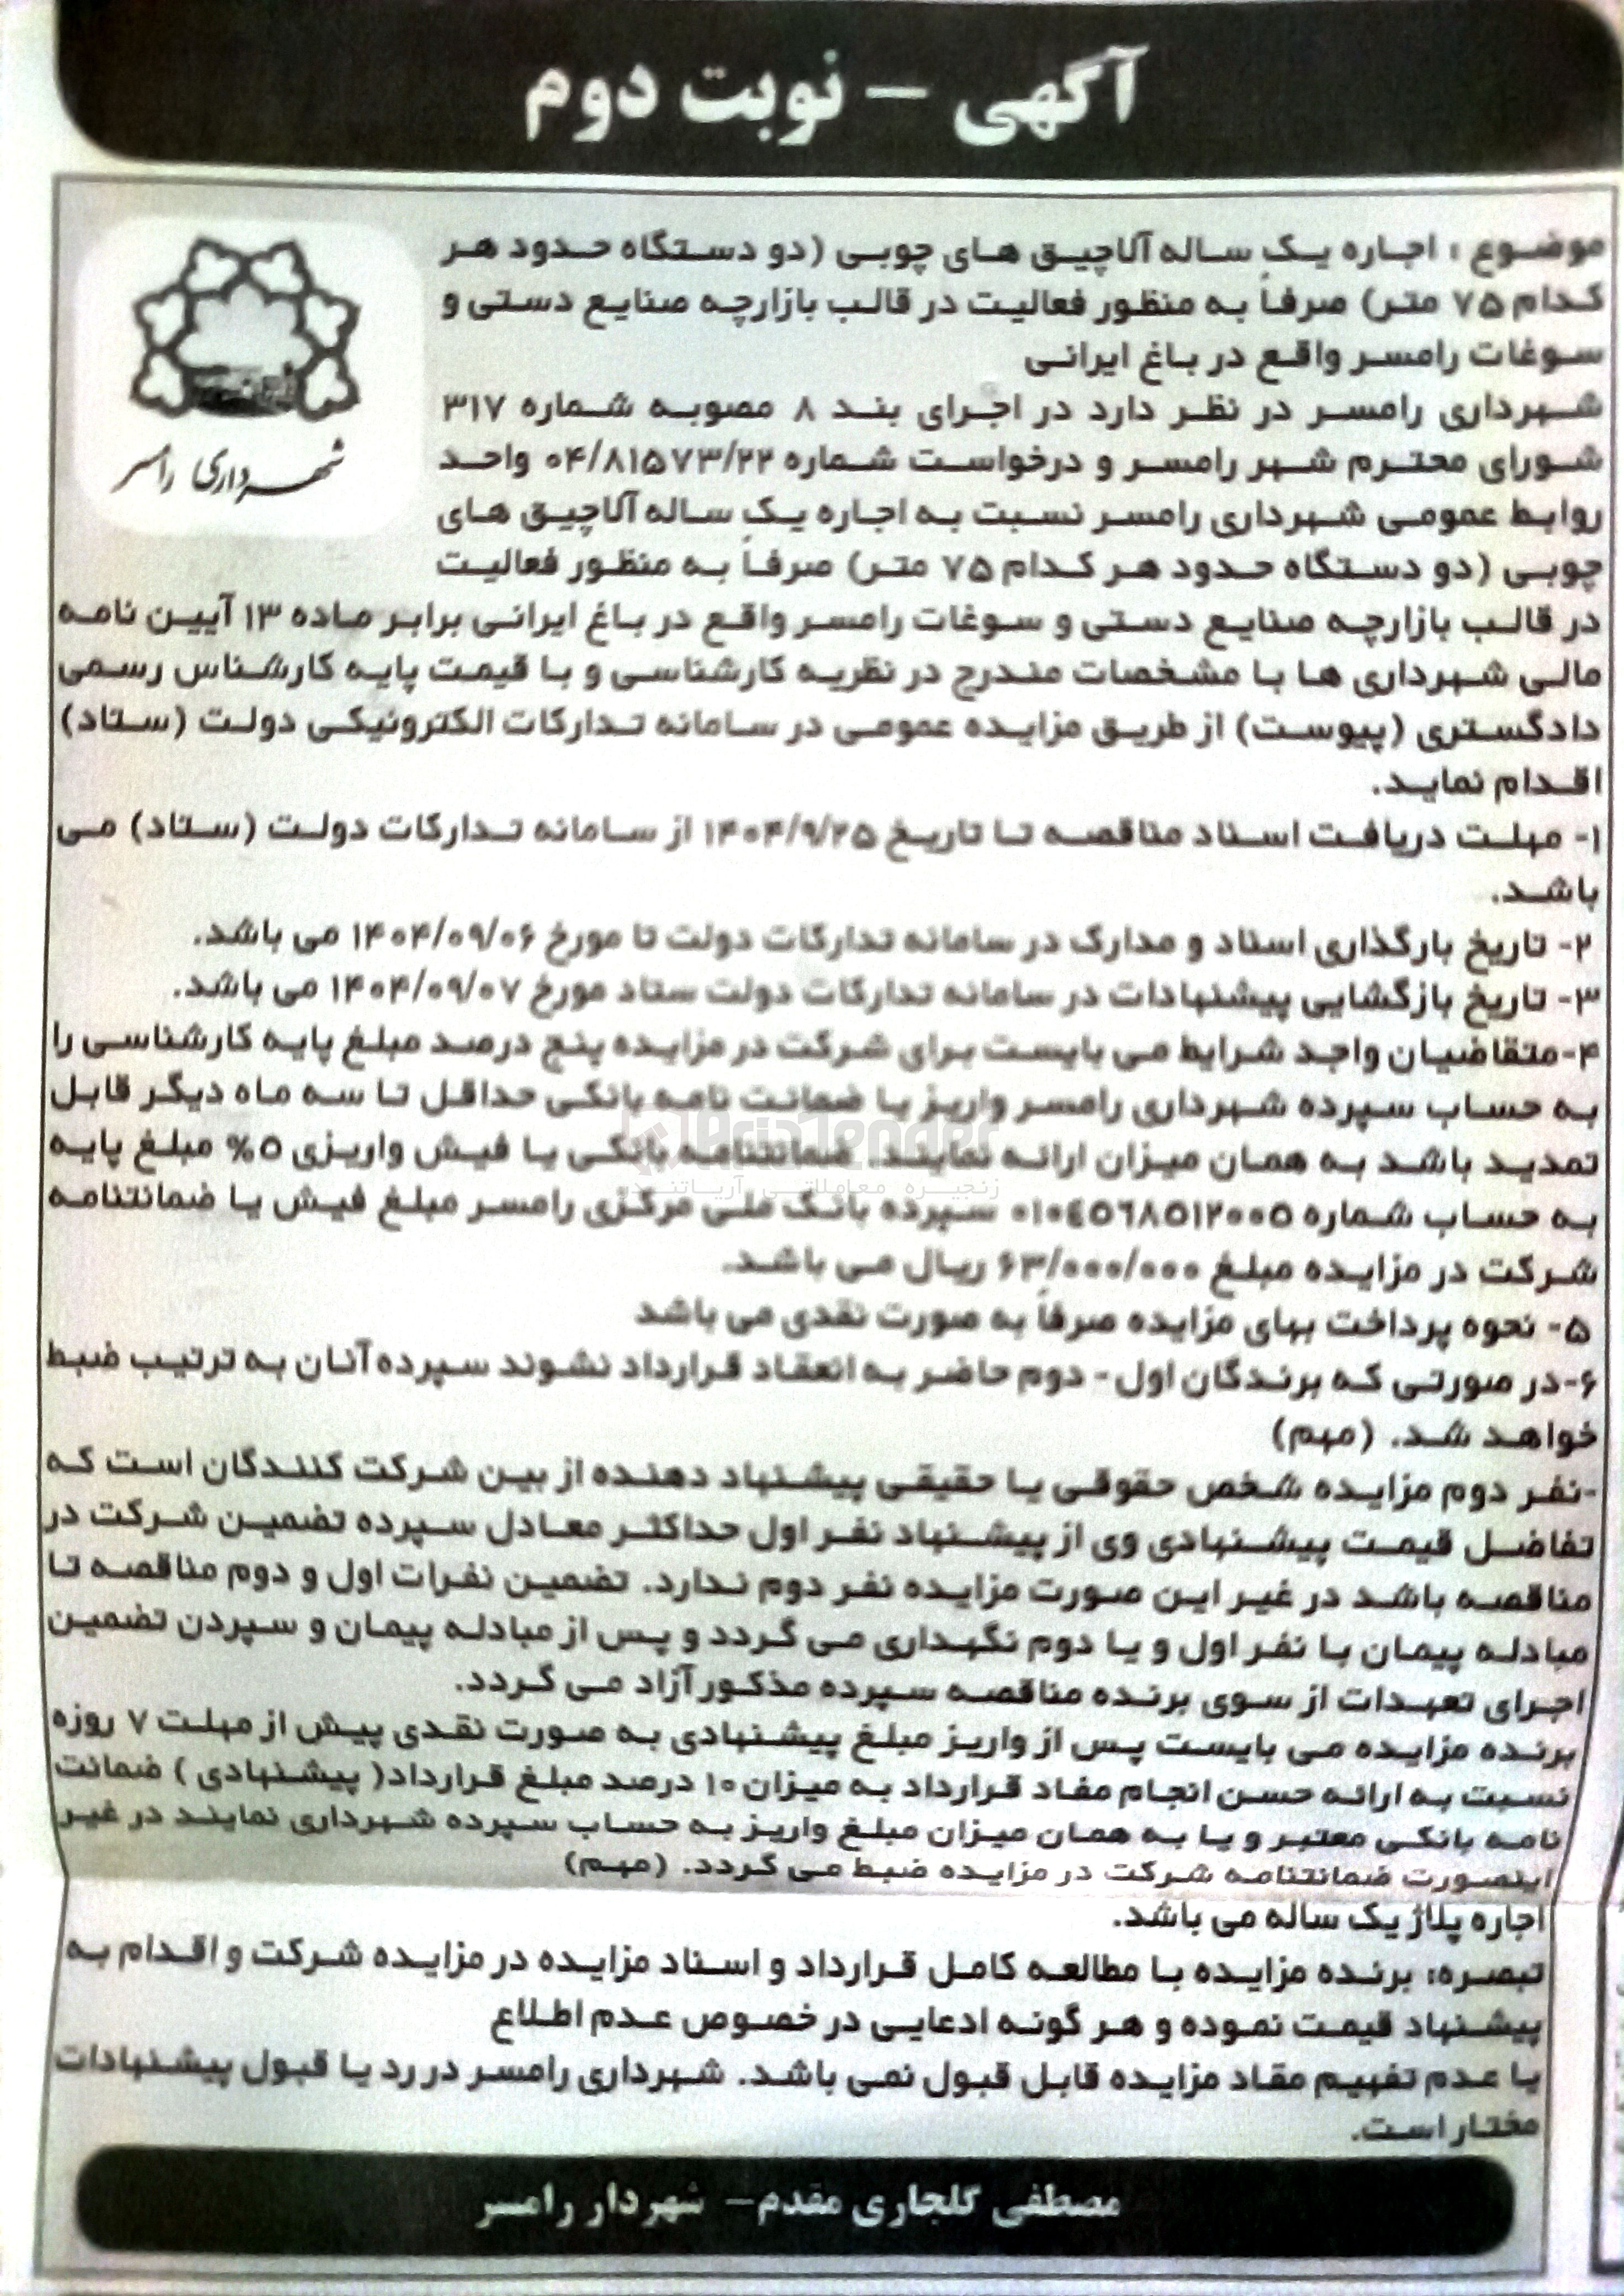 آگهی - نوبت دوم
شهرداری رامسر
موضوع : اجاره یک ساله آلاچیق های چوبی (دو دستگاه حدود هر
کدام ۷۵ متر) صرفاً به منظور فعالیت در قالب بازارچه صنایع دستی و
سوغات رامسر واقع در باغ ایرانی
شهرداری رامسر در نظر دارد در اجرای بند ۸ مصوبه شماره ۳۱۷
شورای محترم شهر رامسر و درخواست شماره ۰۴/۸۱۵۷۳/۲۲ واحد
روابط عمومی شهرداری رامسر نسبت به اجاره یک ساله آلاچیق های
چوبی (دو دستگاه حدود هر کدام ۷۵ متر) صرفاً به منظور فعالیت
در قالب بازارچه صنایع دستی و سوغات رامسر واقع در باغ ایرانی برابر ماده ۱۳ آیین نامه
مالی شهرداری ها با مشخصات مندرج در نظریه کارشناسی و با قیمت پایه کارشناس رسمی
دادگستری (پیوست) از طریق مزایده عمومی در سامانه تدارکات الکترونیکی دولت (ستاد)
اقدام نماید.
۱- مهلت دریافت اسناد مناقصه تا تاریخ ۱۴۰۴/۹/۲۵ از سامانه تدارکات دولت (ستاد) می
باشد.
۲- تاریخ بارگذاری اسناد و مدارک در سامانه تدارکات دولت تا مورخ ۱۴۰۴/۰۹/۰۶ می باشد.
۳- تاریخ بازگشایی پیشنهادات در سامانه تدارکات دولت ستاد مورخ ۱۴۰۴/۰۹/۰۷ می باشد.
۴-متقاضیان واجد شرایط می بایست برای شرکت در مزایده پنج درصد مبلغ پایه کارشناسی را
به حساب سپرده شهرداری رامسر واریز یا ضمانت نامه بانکی حداقل تا سه ماه دیگر قابل
تمدید باشد به همان میزان ارائه نمایند. ضمانتنامه بانکی یا فیش واریزی ۵% مبلغ پایه
به حساب شماره ۰۱۰۴۵۶۸۵۱۲۰۰۵ سپرده بانک ملی مرکزی رامسر مبلغ فیش یا ضمانتنامه
شرکت در مزایده مبلغ ۶۳/۰۰۰/۰۰۰ ریال می باشد.
۵- نحوه پرداخت بهای مزایده صرفاً به صورت نقدی می باشد
۶-در صورتی که برندگان اول- دوم حاضر به انعقاد قرارداد نشوند سپرده آنان به ترتیب ضبط
خواهد شد. (مهم)
-نفر دوم مزایده شخص حقوقی یا حقیقی پیشنهاد دهنده از بین شرکت کنندگان است که
تفاضل قیمت پیشنهادی وی از پیشنهاد نفر اول حداکثر معادل سپرده تضمین شرکت در
مناقصه باشد در غیر این صورت مزایده نفر دوم ندارد. تضمین نفرات اول و دوم مناقصه تا
مبادله پیمان با نفر اول و یا دوم نگهداری می گردد و پس از مبادله پیمان و سپردن تضمین
اجرای تعهدات از سوی برنده مناقصه سپرده مذکور آزاد می گردد.
برنده مزایده می بایست پس از واریز مبلغ پیشنهادی به صورت نقدی پیش از مهلت ۷ روزه
نسبت به ارائه حسن انجام مفاد قرارداد به میزان ۱۰ درصد مبلغ قرارداد( پیشنهادی ) ضمانت
نامه بانکی معتبر و یا به همان میزان مبلغ واریز به حساب سپرده شهرداری نمایند در غیر
اینصورت ضمانتنامه شرکت در مزایده ضبط می گردد. (مهم)
اجاره پلاژ یک ساله می باشد.
تبصره: برنده مزایده با مطالعه کامل قرارداد و اسناد مزایده در مزایده شرکت و اقدام به
پیشنهاد قیمت نموده و هر گونه ادعایی در خصوص عدم اطلاع
یا عدم تفهیم مفاد مزایده قابل قبول نمی باشد. شهرداری رامسر در رد یا قبول پیشنهادات
مختار است.
مصطفی گلجاری مقدم- شهردار رامسر
AriaTender
زنجیره معاملاتی آریاتندر